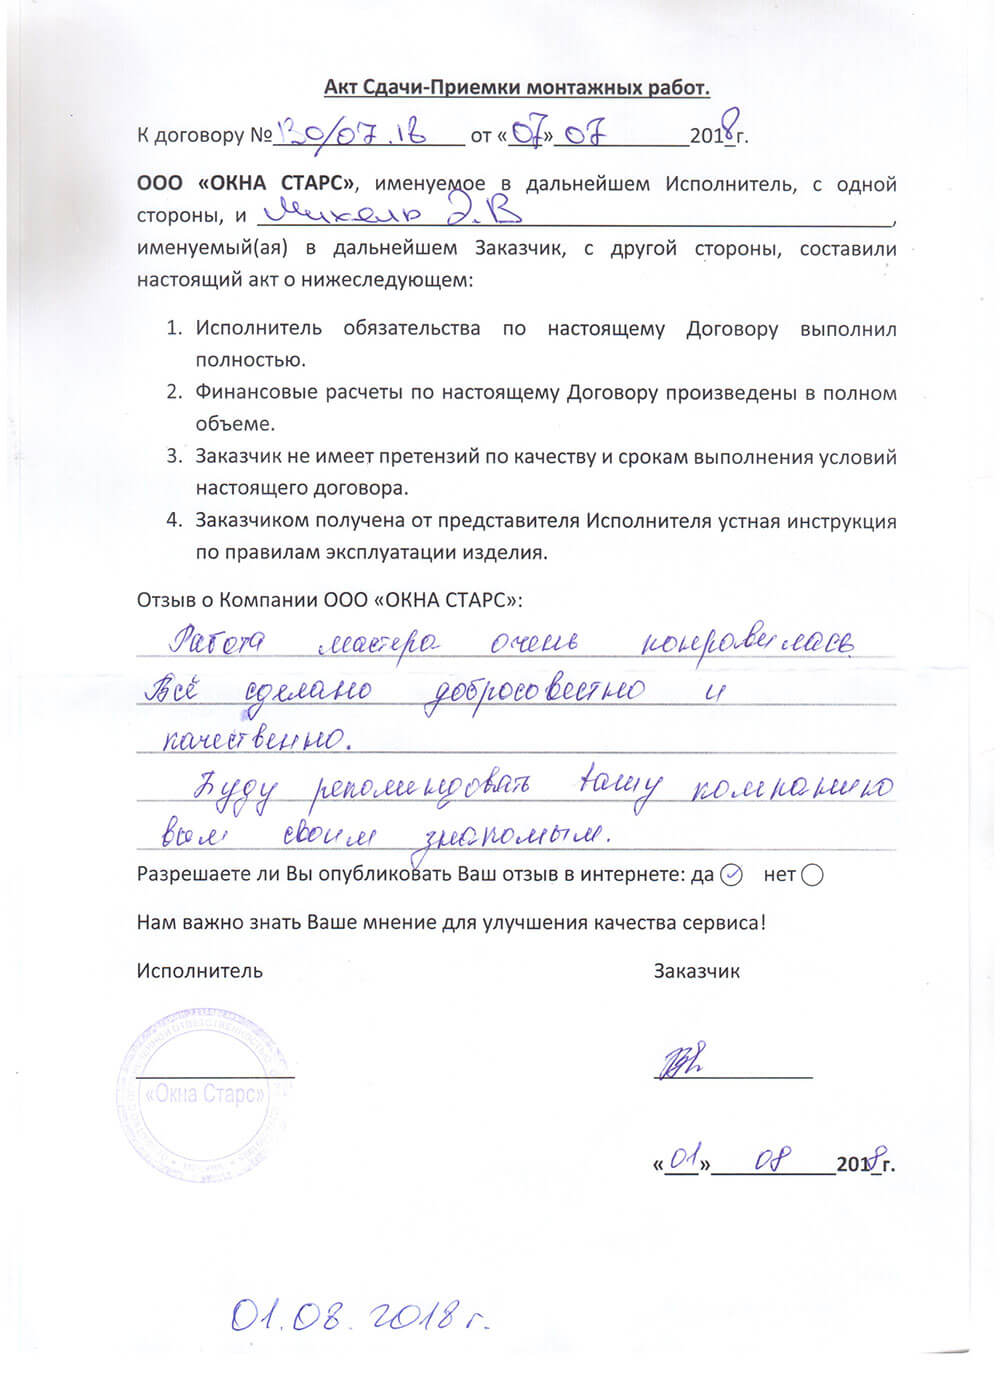 Акт Сдачи-Приемки монтажных работ.
К договору № 130/07.18 от «07» 07 2018 г.
ООО «ОКНА СТАРС», именуемое в дальнейшем Исполнитель, с одной
стороны, и Михель Э.В ,
именуемый(ая) в дальнейшем Заказчик, с другой стороны, составили
настоящий акт о нижеследующем:
1. Исполнитель обязательства по настоящему Договору выполнил
полностью.
2. Финансовые расчеты по настоящему Договору произведены в полном
объеме.
3. Заказчик не имеет претензий по качеству и срокам выполнения условий
настоящего договора.
4. Заказчиком получена от представителя Исполнителя устная инструкция
по правилам эксплуатации изделия.
Отзыв о Компании ООО «ОКНА СТАРС»:
Работа мастера очень понравилась
Всё сделано добросовестно и
качественно.
Буду рекомендовать Вашу компанию
всем своим знакомым.
Разрешаете ли Вы опубликовать Ваш отзыв в интернете: да нет
Нам важно знать Ваше мнение для улучшения качества сервиса!
Исполнитель Заказчик
«Окна Старс»
«01» 08 2018 г.
01.08.2018 г.